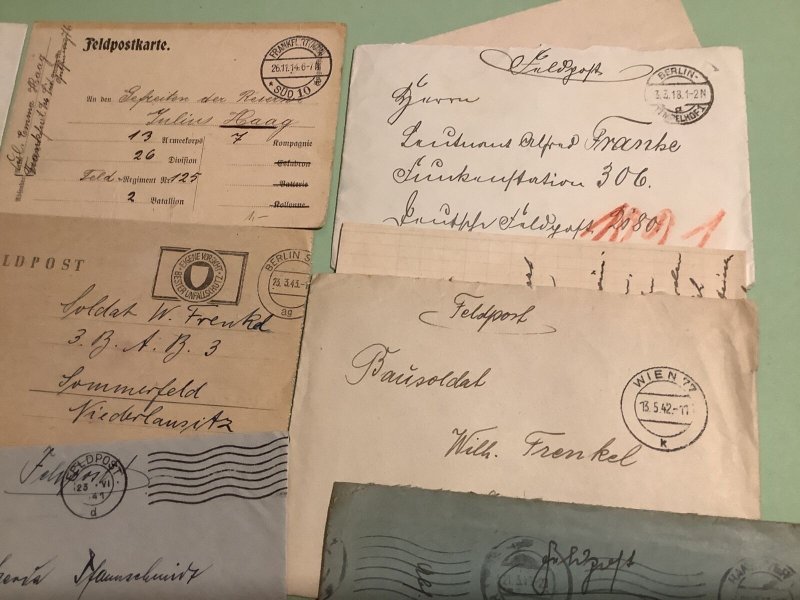 Feldpostkarte.
FRANKFURT (MAIN)
26.11.14.6-7
SÜD 10
An den Gefreiten der Reserve
Julius Haag
13 Armeekorps 7 Kompagnie
26 Division Eskadron
Feld-Regiment Nr. 125 Batterie
2 Bataillon Kolonne
1.-
Emma Haag
Feldpost
BERLIN-
3.3.18.1-2N
TEMPELHOF 1
Herrn
Leutnant Alfred Franke
Funkenstation 306.
Deutsche Feldpost
LDPOST
EIGENE VORSICHT
BESTER UNFALLSCHUTZ
BERLIN S
Soldat W. Frenkel
3. B. A. B. 3
Sommerfeld
Niederlausitz
Feldpost
WIEN 77
13.5.42.-17
k
Bausoldat
Wilh. Frenkel
Feldpost
FELDPOST
23 VI
41
d
Pfannschmidt
Feldpost